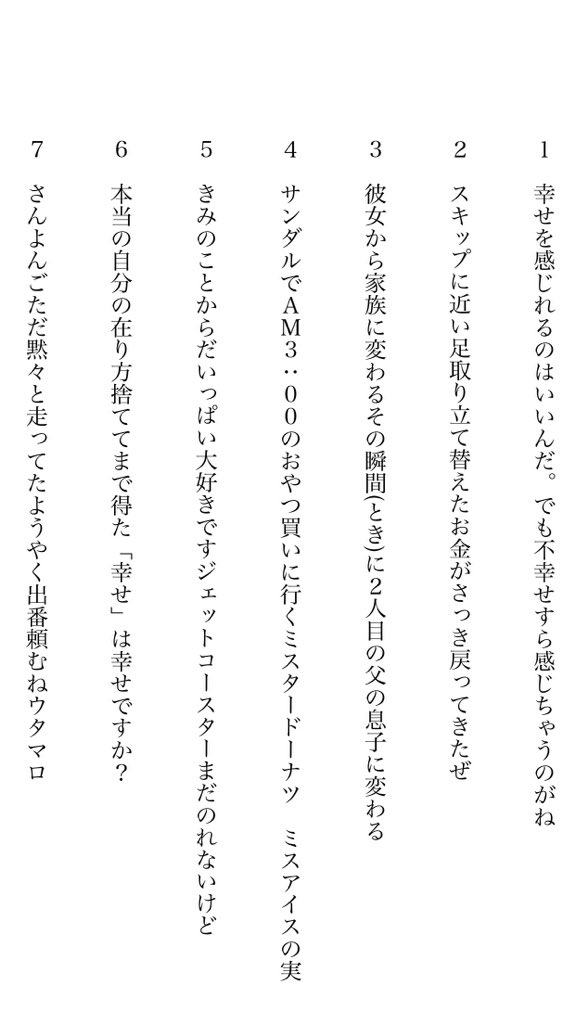 1 幸せを感じれるのはいいんだ。でも不幸せすら感じちゃうのがね
2 スキップに近い足取り立て替えたお金がさっき戻ってきたぜ
3 彼女から家族に変わるその瞬間(とき)に２人目の父の息子に変わる
4 サンダルでＡＭ３：００のおやつ買いに行くミスタードーナツ　ミスアイスの実
5 きみのことからだいっぱい大好きですジェットコースターまだのれないけど
6 本当の自分の在り方捨ててまで得た「幸せ」は幸せですか？
7 さんよんごただ黙々と走ってたようやく出番頼むねウタマロ